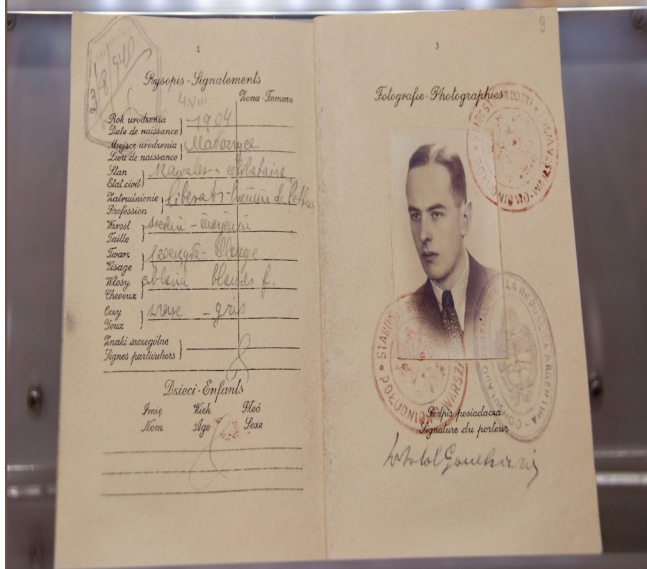 2
Rysopis - Signalements
Żona - Femme
4 VIII
Rok urodzenia
Date de naissance
1904
Miejsce urodzenia
Lieu de naissance
Małoszyce
Stan
Etat civil
Kawaler - célibataire
Zatrudnienie
Profession
literat - homme de lettres
Wzrost
Taille
średni - moyenne
Twarz
Visage
Włosy
Cheveux
blond
Oczy
Yeux
szare - gris
Znaki szczególne
Signes particuliers
Dzieci - Enfants
Imię Wiek Płeć
Nom Age Sexe
3
Fotografie - Photographies
Podpis posiadacza
Signature du porteur
Witold Gombrowicz